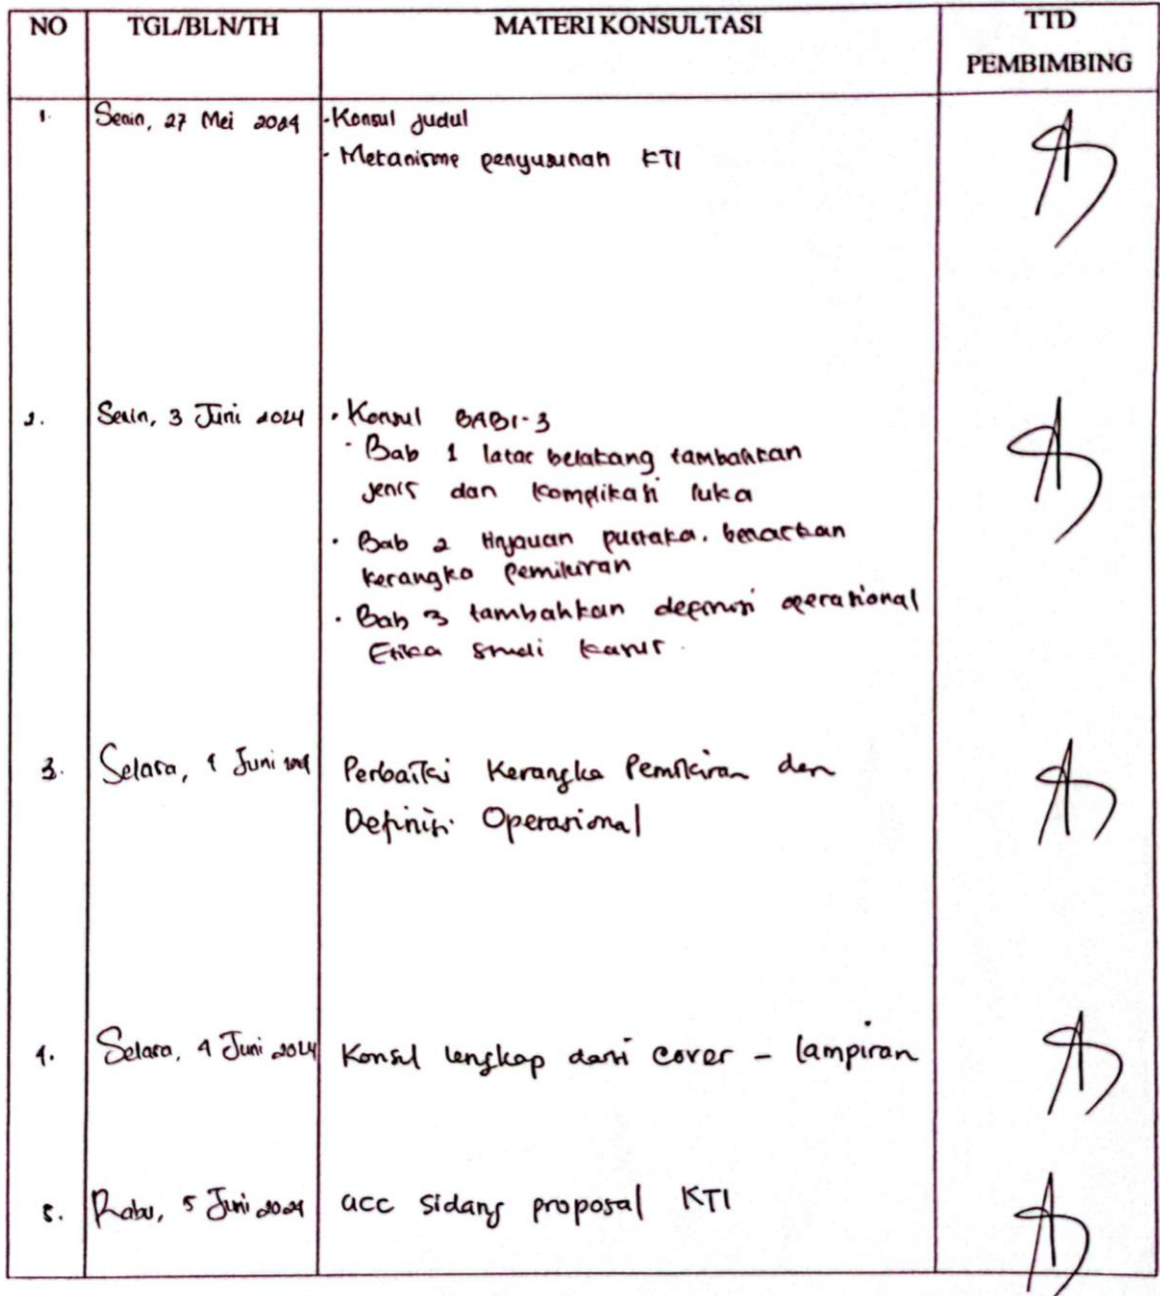 NO TGL/BLN/TH MATERI KONSULTASI TTD
PEMBIMBING
1. Senin, 27 Mei 2024 - Konsul judul
- Mekanisme penyusunan KTI
2. Senin, 3 Juni 2024 • Konsul BAB1-3
• Bab 1 latar belakang tambahkan
jenis dan komplikasi luka
• Bab 2 tinjauan pustaka. benarkan
kerangka pemikiran
• Bab 3 tambahkan definisi operasional
Etika studi kasus.
3. Selasa, 4 Juni 2024 Perbaiki Kerangka Pemikiran dan
Definisi Operasional
4. Selasa, 4 Juni 2024 Konsul lengkap dari cover - lampiran
5. Rabu, 5 Juni 2024 acc sidang proposal KTI